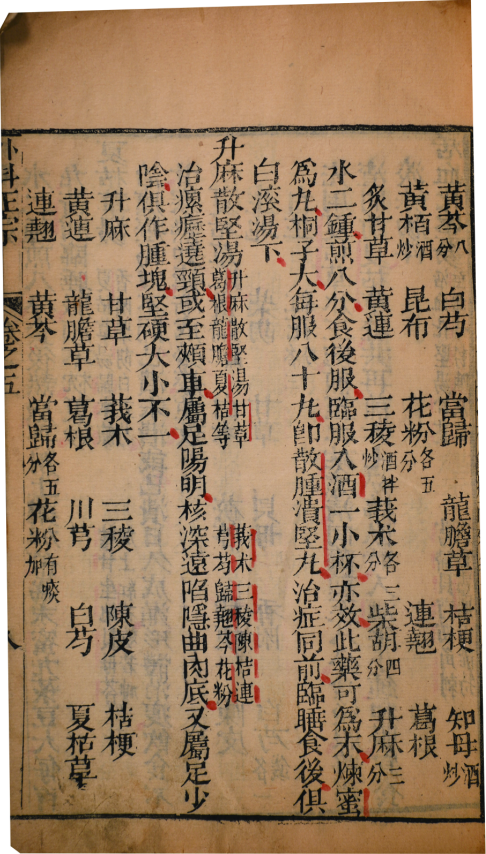 黃芩八分 白芍 當歸 龍膽草 桔梗 知母酒炒
黃栢酒炒 昆布 花粉各五分 連翹 葛根
炙甘草 黃連 三稜酒拌炒 莪朮各三分 柴胡四分 升麻三分
水二鍾煎八分食後服臨服入酒一小杯亦效此藥可為末煉蜜
為丸桐子大每服八十丸卽散腫潰堅丸治症同前臨臥食後俱
白滚湯下
升麻散堅湯 升麻散堅湯甘草 莪木三稜陳桔連 葛根龍膽夏桔等 芎芍歸翹芩花粉
治瘰癧遶頸或至頰車屬足陽明核深遠陷隱曲肉底又屬足少
陰俱作腫塊堅硬大小不一
升麻 甘草 莪木 三稜 陳皮 桔梗
黃連 龍膽草 葛根 川芎 白芍 夏枯草
連翹 黃芩 當歸各五分 花粉有痰加
外科正宗 卷之五 八